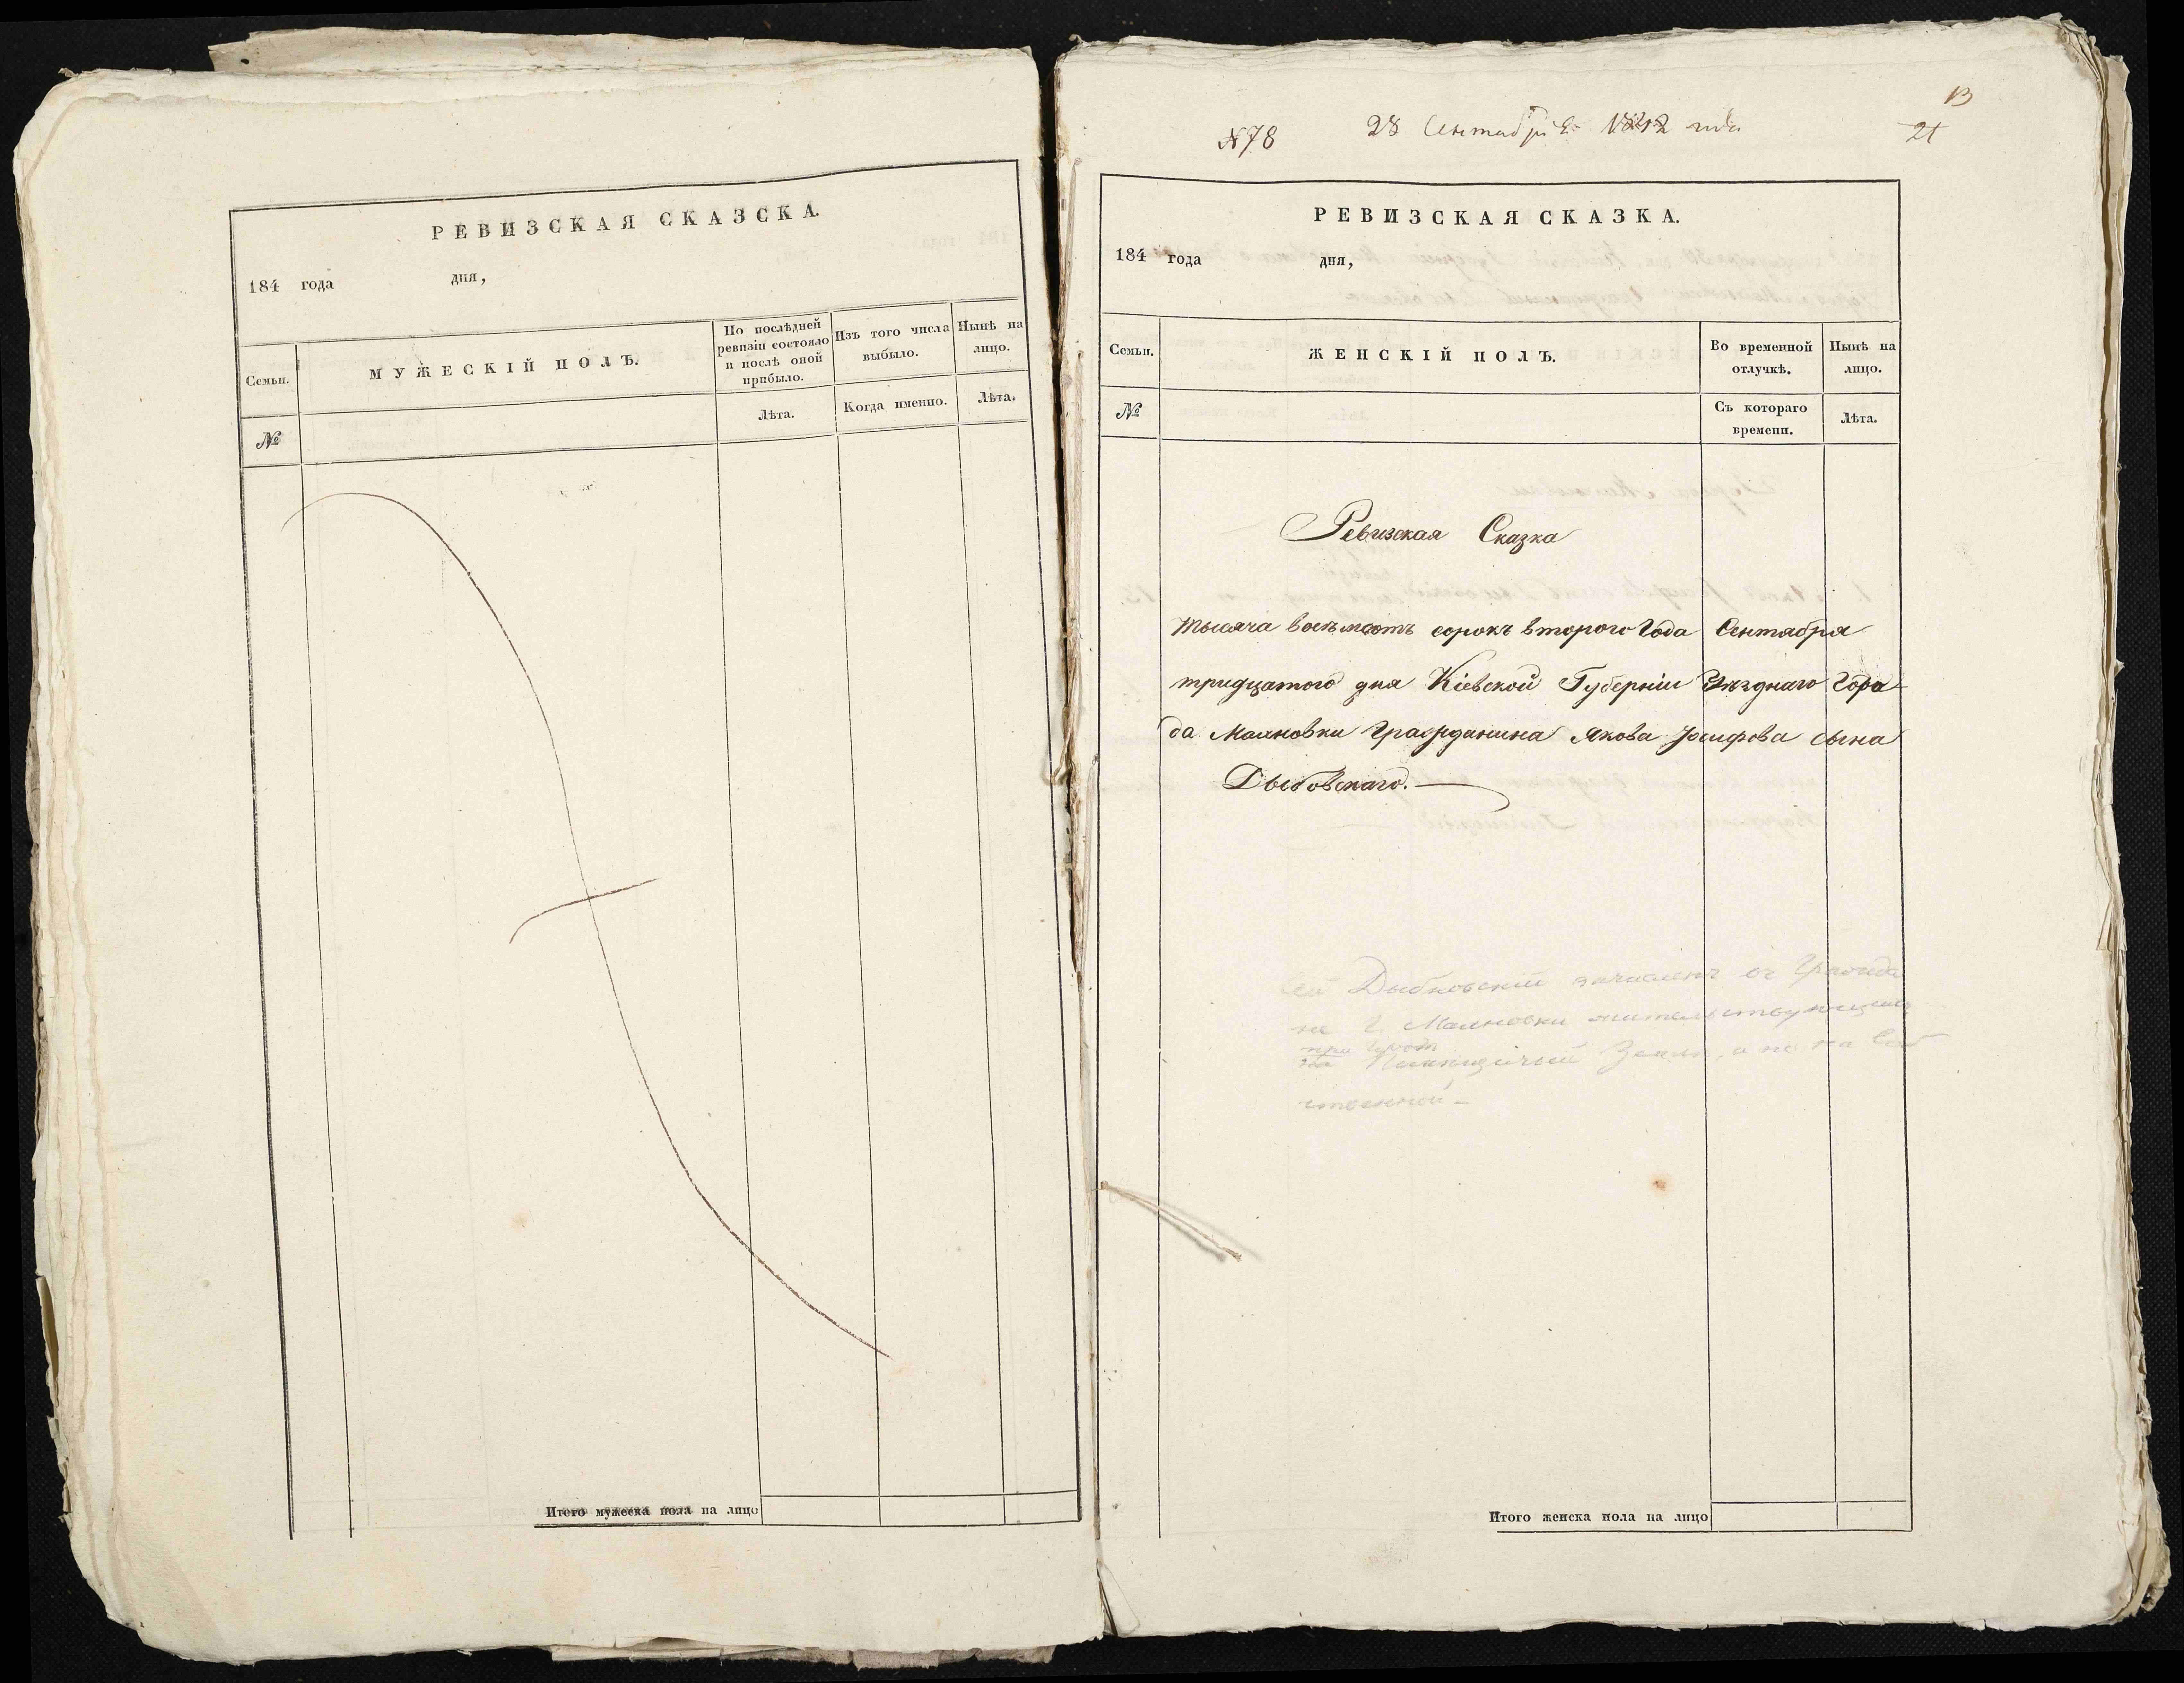 РЕВИЗСКАЯ СКАЗСКА.
184 года дня,
Семьи.
МУЖЕСКІЙ ПОЛЪ.
По послѣдней
ревизіи состояло
и послѣ оной
прибыло.
Изъ того числа
выбыло.
Нынѣ на
лицо.
№
Лѣта.
Когда именно.
Лѣта.
Итого мужеска пола на лицо
№78
28 Сентября 1842 года
13
21
РЕВИЗСКАЯ СКАЗКА.
184 года дня,
Семьи.
ЖЕНСКІЙ ПОЛЪ.
Во временной
отлучкѣ.
Нынѣ на
лицо.
№
Съ котораго
времени.
Лѣта.
Ревизская Сказка
тысяча восемьсотъ сорокъ втораго Года Сентября
тридцатого дня Кіевской Губерніи Уѣзднаго Горо-
да Махновки Гражданина Якова Іосифова сына
Дыбовскаго.
Сей Дыбковскій зачисленъ съ Гражда
не Г. Махновки жительствующимъ
на Помѣщичьей Земли, а не на Соб
ственной -
Итого женска пола на лицо